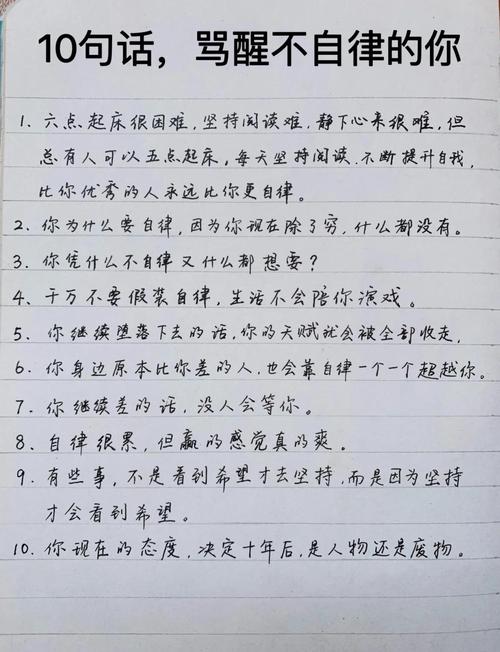 10句话，骂醒不自律的你
1、六点起床很困难，坚持阅读难，静下心来很难，但
总有人可以五点起床，每天坚持阅读、不断提升自我，
比你优秀的人永远比你更自律。
2、你为什么要自律，因为你现在除了穷，什么都没有。
3、你凭什么不自律又什么都想要？
4、千万不要假装自律，生活不会陪你演戏。
5、你继续堕落下去的话，你的天赋就会被全部收走，
6、你身边原本比你差的人，也会靠自律一个一个超越你。
7、你继续差的话，没人会等你。
8、自律很累，但赢的感觉真的爽。
9、有些事，不是看到希望才去坚持，而是因为坚持
才会看到希望。
10、你现在的态度，决定十年后，是人物还是废物。